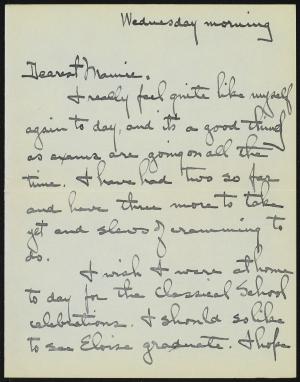 Wednesday morning
Dearest Mamie,
I really feel quite like myself
again to day, and it's a good thing
as exams are going on all the
time. I have had two so far
and have three more to take
yet and slews of cramming to
do.
I wish I were at home
to day for the Classical School
celebrations. I should so like
to see Eloise graduate. I hope